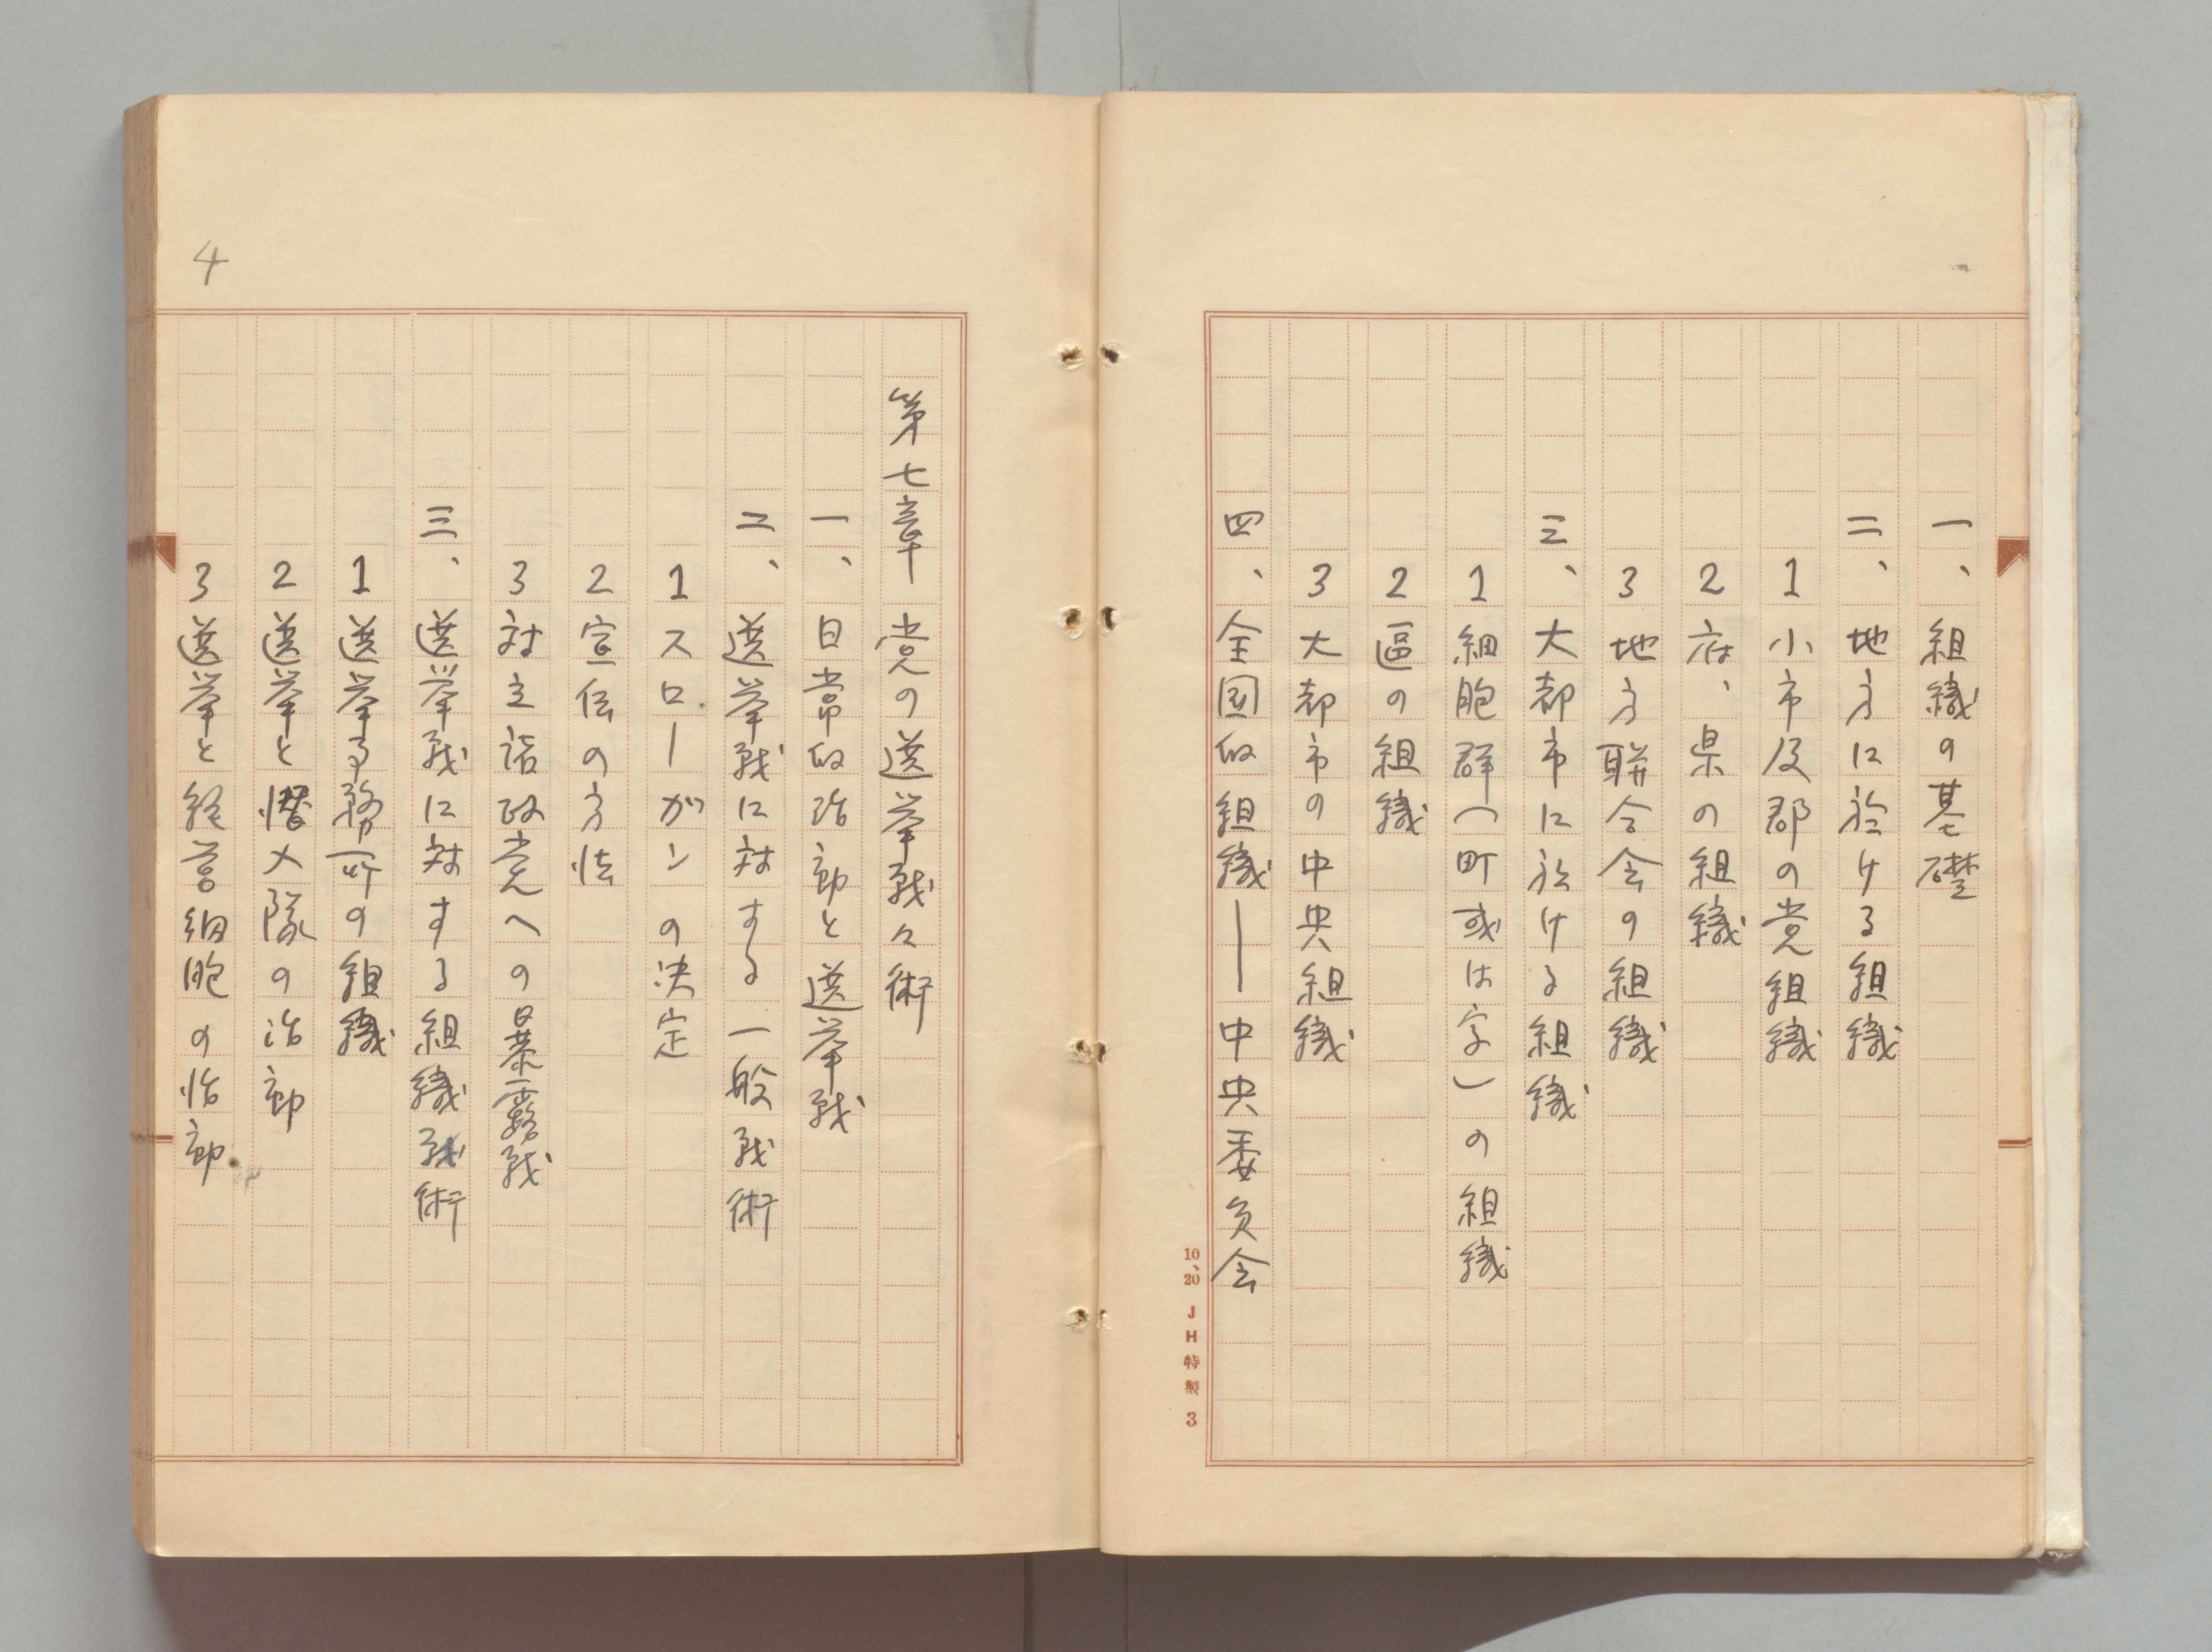 一、組織の基礎
二、地方に於ける組織
1小市及郡の党組織
2府、県の組織
3地方聯合会の組織
三、大都市に於ける組織
1細胞群(町或は字)の組織
2區の組織
3大都市の中央組織
四、全国的組織―中央委員会
10、20 JH特製 3
第七章 党の選挙戦々術
一、日常的活動と選挙戦
二、選挙戦に対する一般戦術
1スローガンの決定
2宣伝の方法
3対立諸政党への暴露戦
三、選挙戦に対する組織戦術
1選挙事務所の組織
2選挙と潜入隊の活動
3選挙と経営細胞の活動
4